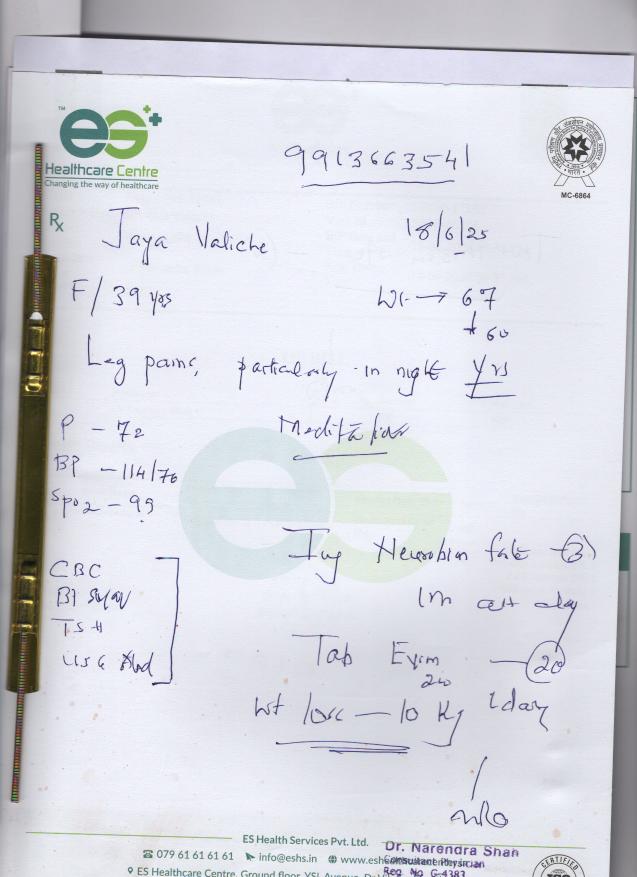 TM es++
Healthcare Centre
Changing the way of healthcare
9913663541
MC-6864
Rx
Jaya Valiche
18/6/25
F/39 yrs
Wt → 67
↓ 60
Leg pains, particularly in night yrs
P - 72
Meditation
BP - 114/76
SpO2 - 99
Inj Neurobion forte - (3)
CBC
IM alt day
Bl sugar
TSH
Tab Evim - (20)
USG Abd
1 day
wt loss - 10 Kg
ES Health Services Pvt. Ltd.
079 61 61 61 61 info@eshs.in
Dr. Narendra Shah
Consultant Physician
Reg. No. G-4383
CERTIFIED